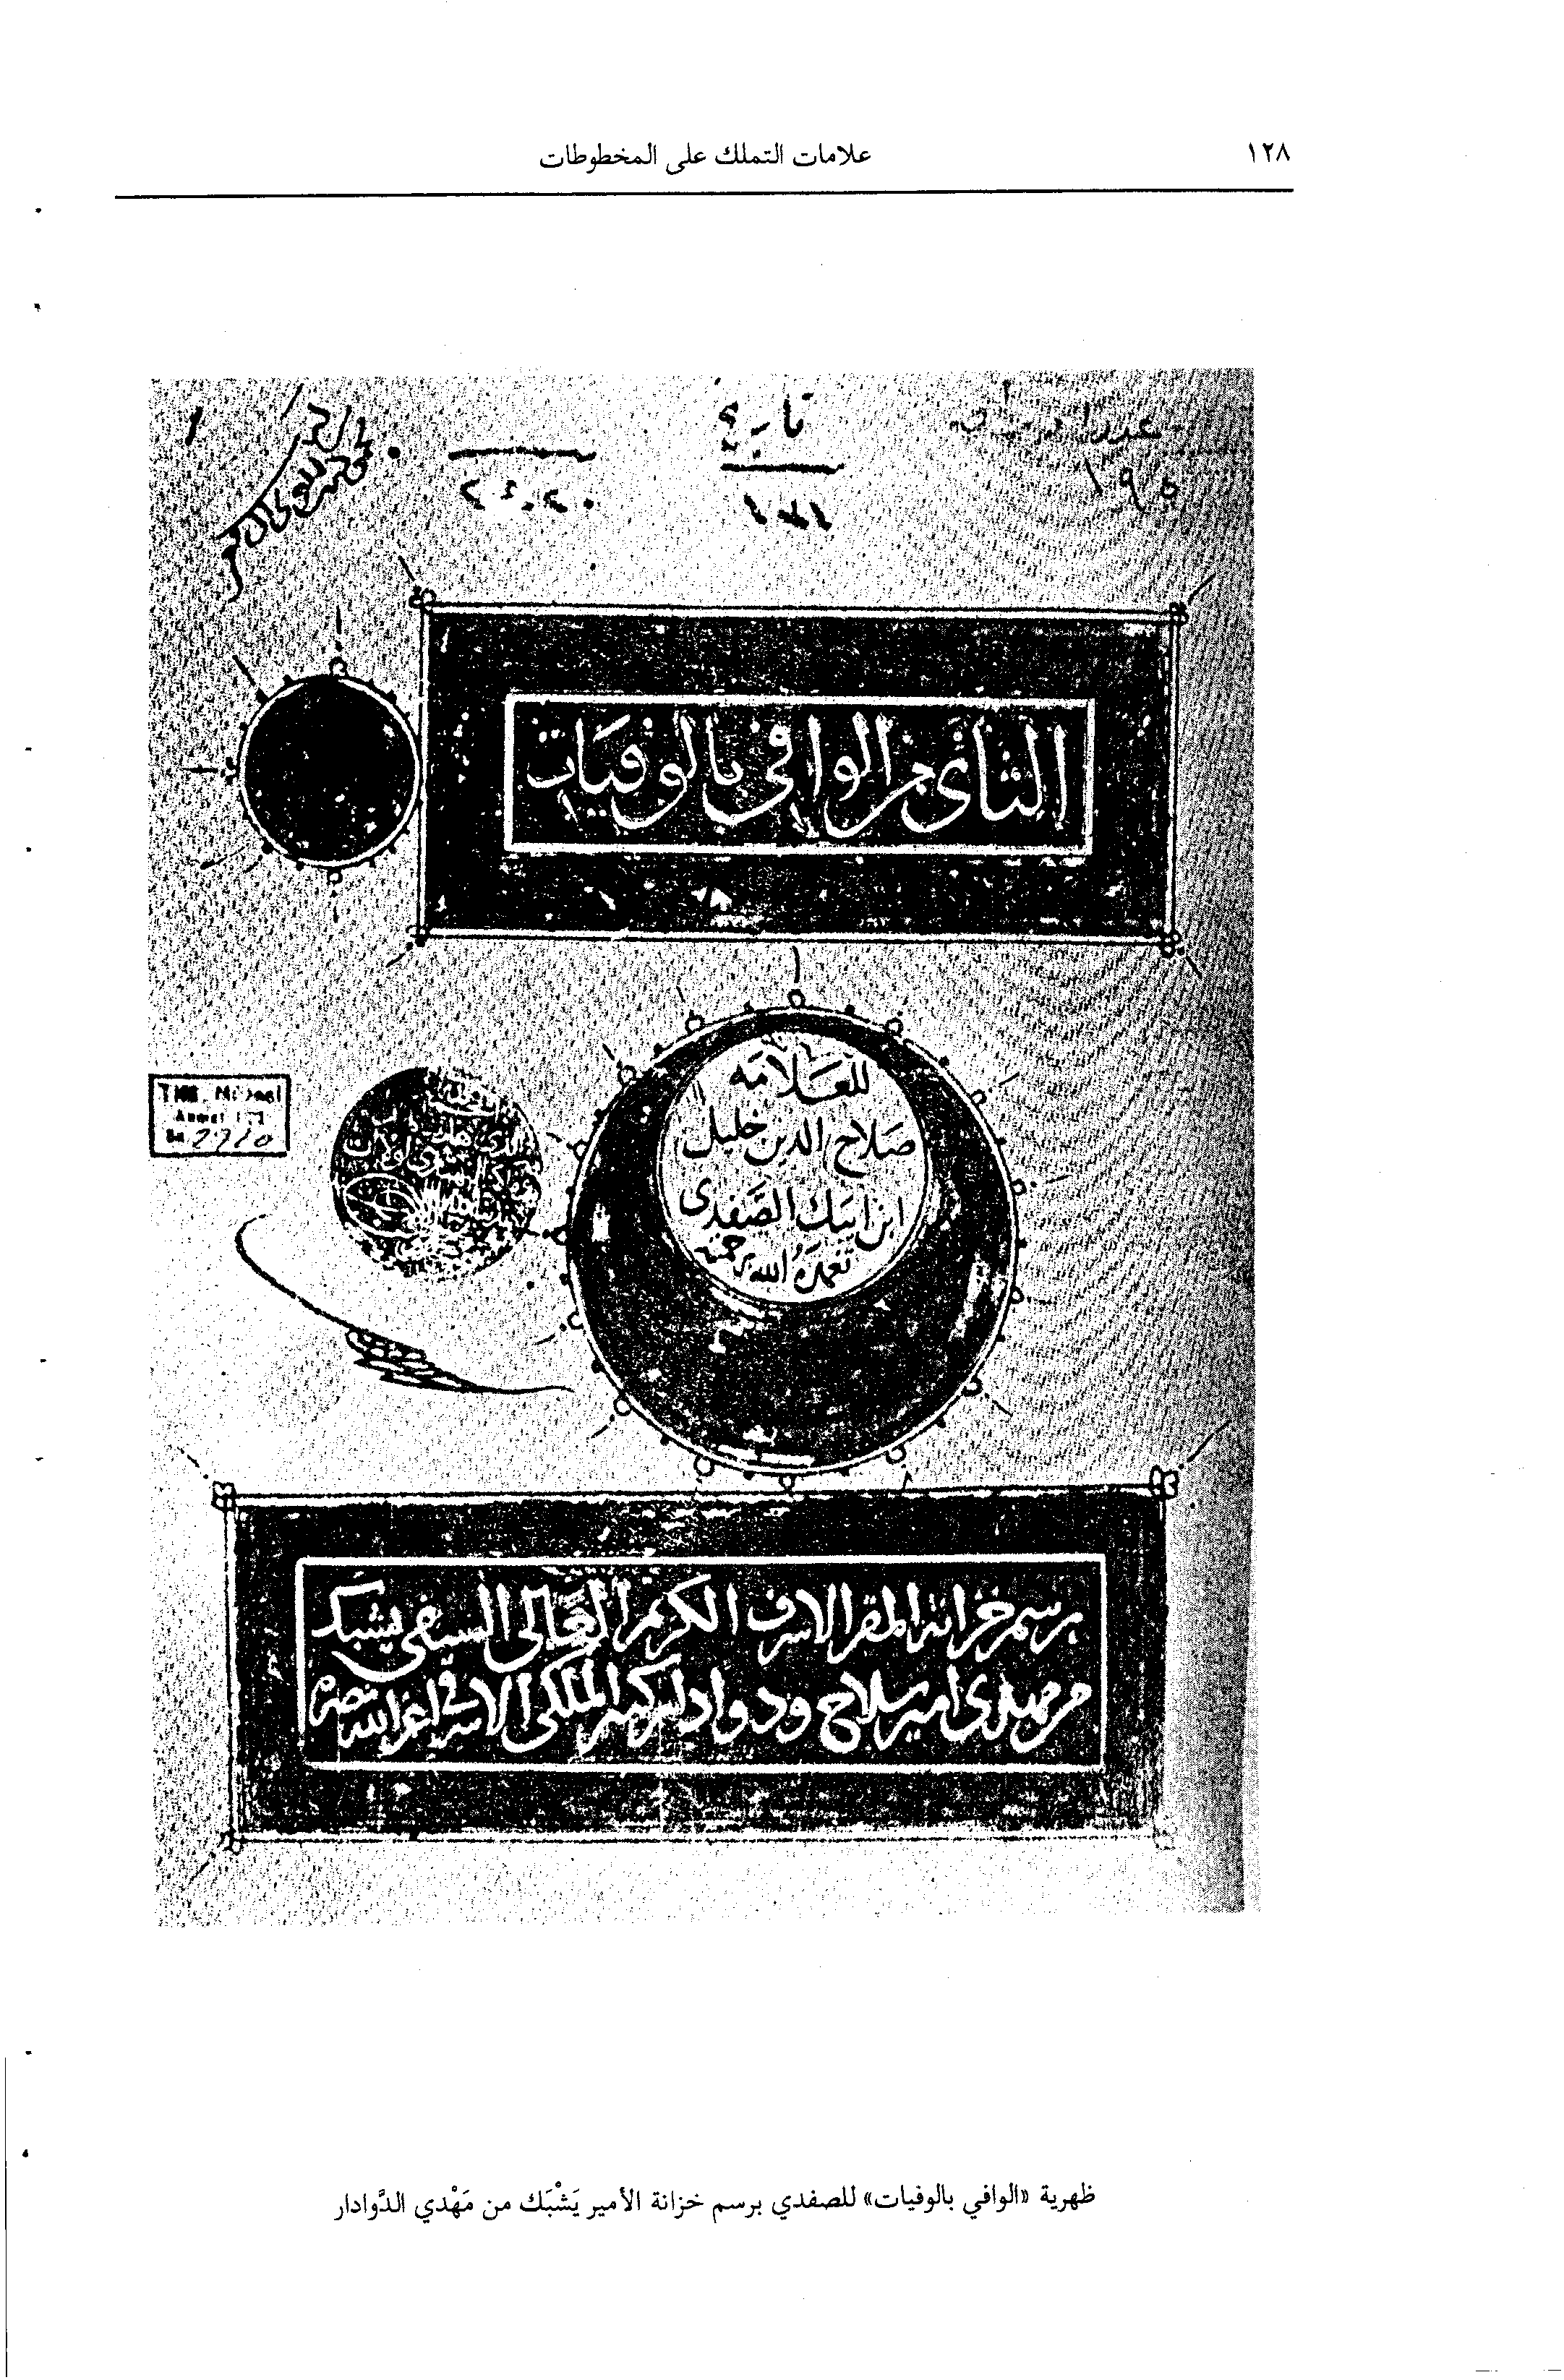 ١٢٨
علامات التملك على المخطوطات
تاريخ
١٩٥
الثاني من الوافي بالوفيات
للعلامه
صلاح الدين خليل
ابن ايبك الصفدي
تغمده الله برحمته
برسم خزانة المقر الاشرف الكريم العالى السيفى يشبك
من مهدى امير سلاح ودوادار كبير الملكى الاشرفي اعز الله نصره
2920
ظهرية «الوافي بالوفيات» للصفدي برسم خزانة الأمير يَشْبَك من مَهْدي الدَّوادار